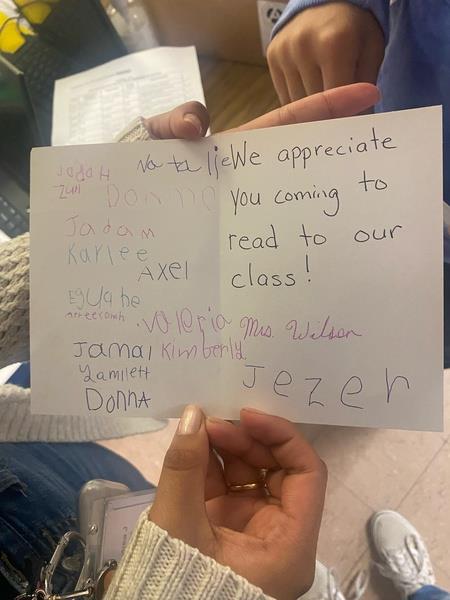 Natalje
Zuri
Donme
Jadam
Karlee
Axel
Valeria
Jamal
Kimberly
Yamilett
Donna
We appreciate
you coming to
read to our
class!
Mrs. Wilson
Jezer